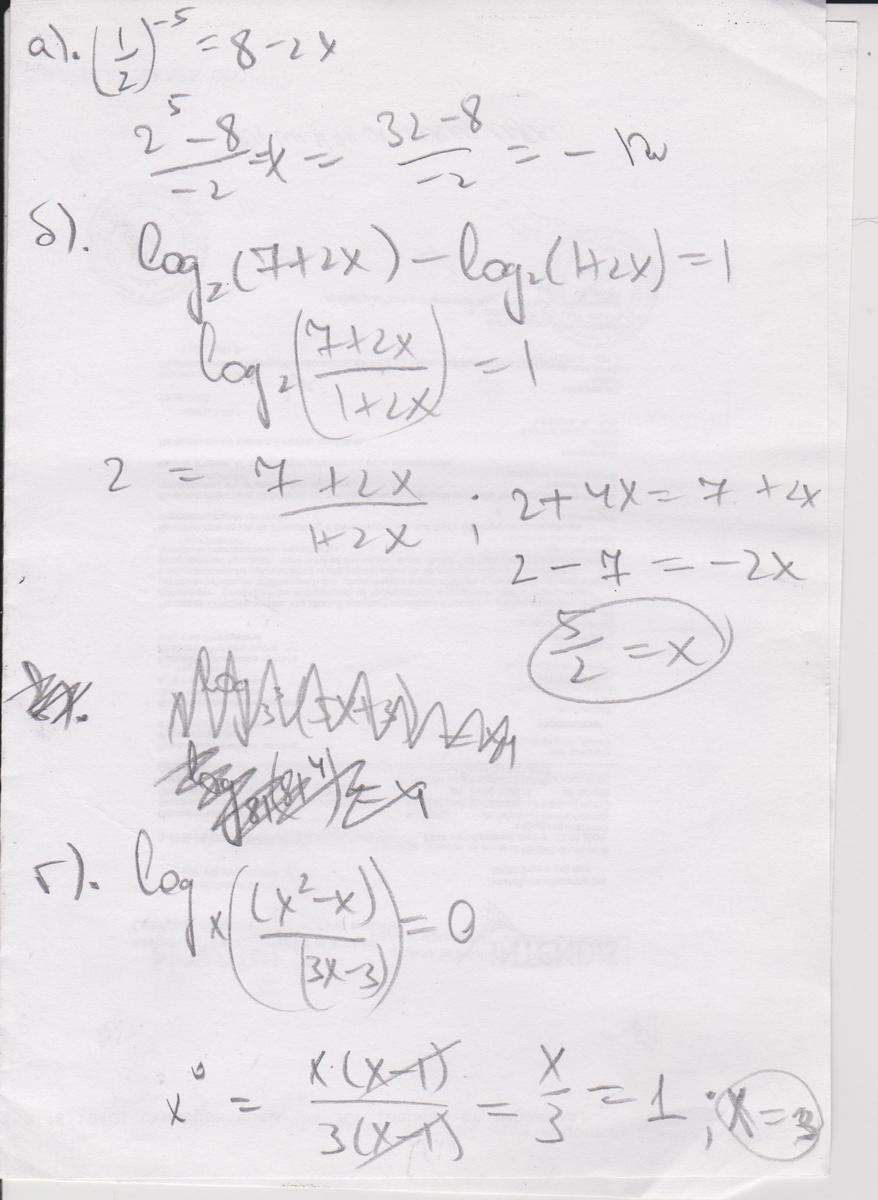 а). (1/2)^-5 = 8-2x
(2^5 - 8)/(-2) = x = (32-8)/(-2) = - 12
б). log₂(7+2x) - log₂(1+2x) = 1
log₂((7+2x)/(1+2x)) = 1
2 = (7+2x)/(1+2x) ; 2+4x = 7+2x
2 - 7 = -2x
5/2 = x
г). log_x((x²-x)/(3x-3)) = 0
x⁰ = (x·(x-1))/(3(x-1)) = x/3 = 1 ; x = 3